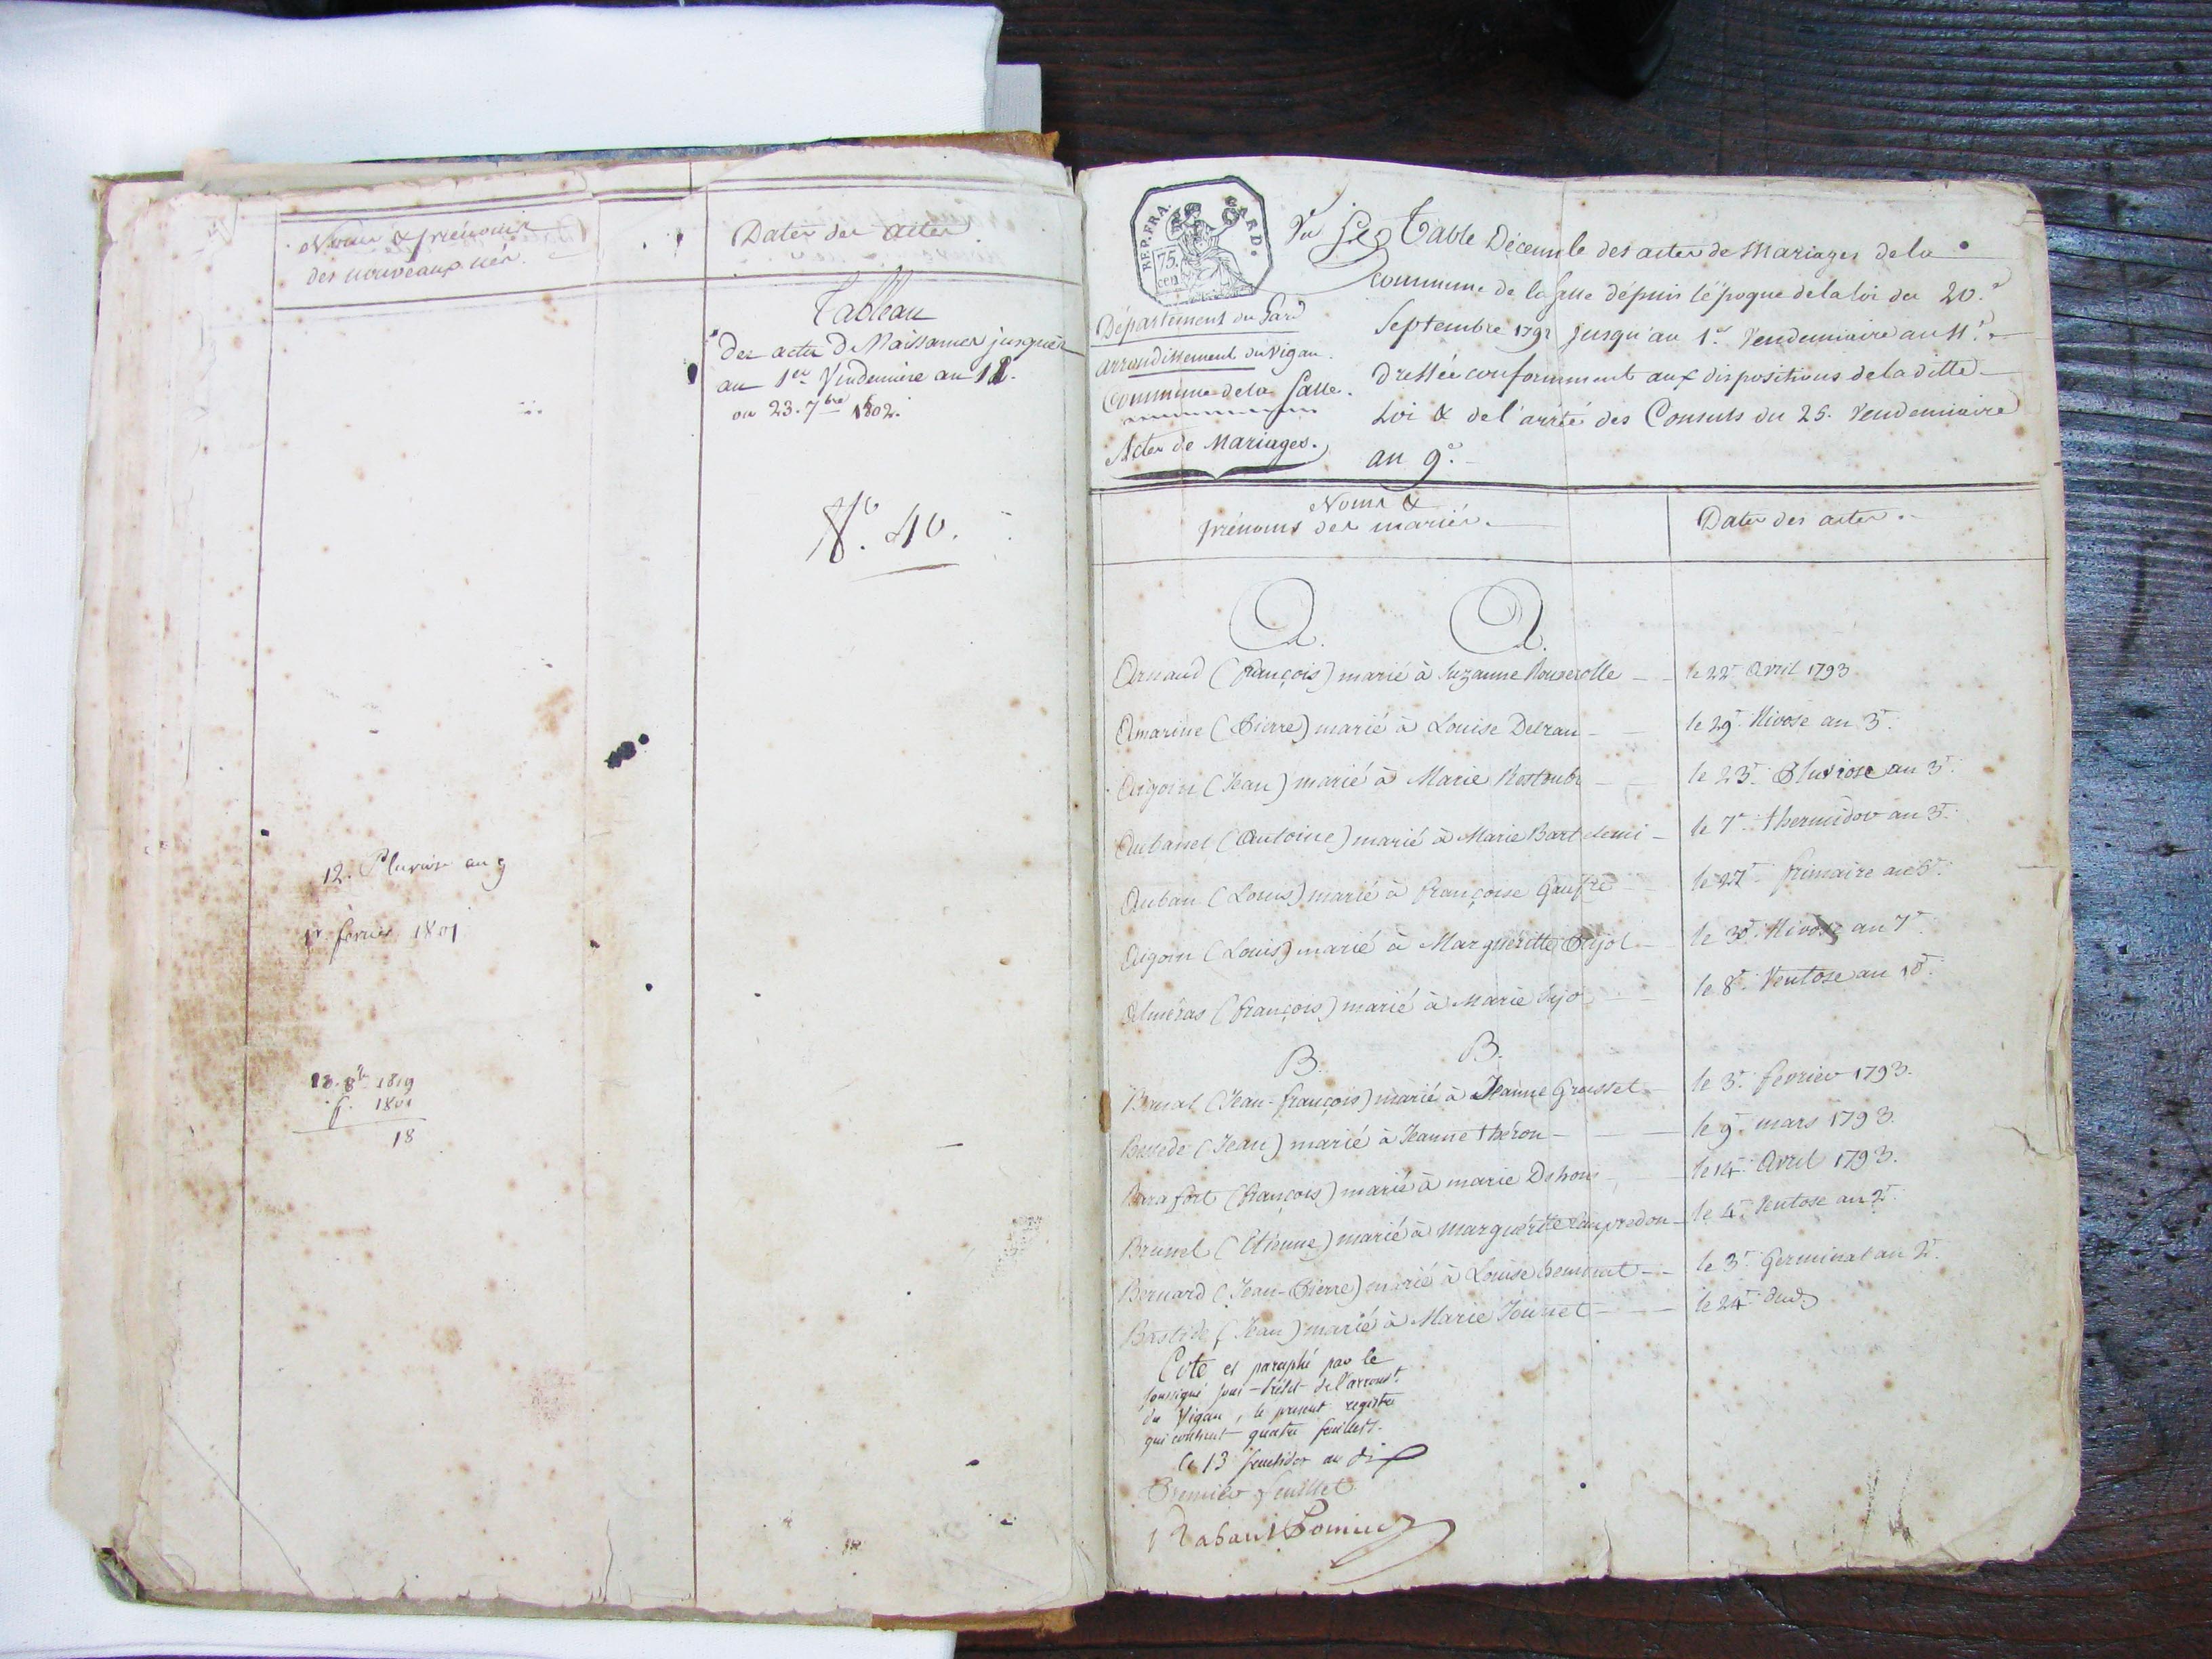 Noms & prénoms
des nouveaux nés.
Dates des actes
Tableau
des actes De Naissances jusques
au 1er Vendemiere an 12.
ou 23. 7bre 1802.
No. 40.
12. Pluviose an 9
1r. fevrier 1801
18. 8bre 1819
f. 1801
18
REP. FRA.
GARD.
75.
cen
Table Décennale des actes de Mariages de la
commune de la Salle dépuis l'époque de la loi du 20.e
Septembre 1792 jusqu'au 1.er Vendemiaire an 11.e
Dressée conformement aux dispositions de la ditte
Loi & de l'arrêté des Consuls du 25. Vendemiaire
an 9.e
Département du Gard
arrondissement du Vigan.
Commune de la Salle.
Actes de Mariages.
Noms &
prénoms des mariés.
Dates des actes.
A. A.
Arnaud (françois) marié à Suzanne Rouverolle le 22e Avril 1793
Amarine (Pierre) marié à Louise Delrau le 29e Nivose an 3e
Aigoin (Jean) marié à Marie Restouble le 23e Pluviose an 3e
Aubanel (Antoine) marié à Marie Bartelemi le 7e thermidor an 3e
Auban (Louis) marié à françoise Gaufrè le 27e frimaire an 5e
Aigoin (Louis) marié à Margueritte Pujol le 30e Nivose an 7e
Almeras (françois) marié à Marie le 8e Ventose an 10e
B. B.
Banal (Jean-françois) marié à Jeanne Grousset le 3e fevrier 1793.
(Jean) marié à Jeanne théron le 9e mars 1793.
Barafort (françois) marié à marie Dehons le 14e Avril 1793.
Brunel (Etienne) marié à Marguéritte Caupredon le 4e Ventose an 2e
Bernard (Jean-Pierre) marié à Louise le 3e Germinal an 2e
Bastide (Jean) marié à Marie Journet le 24e dud.
Coté et paraphé par le
soussigné sous-préfet de l'arrondt.
du Vigan, le present registre
qui contient quatre feuillets.
le 13 fructidor an dix
Premier feuillet
Rabaut Pomier